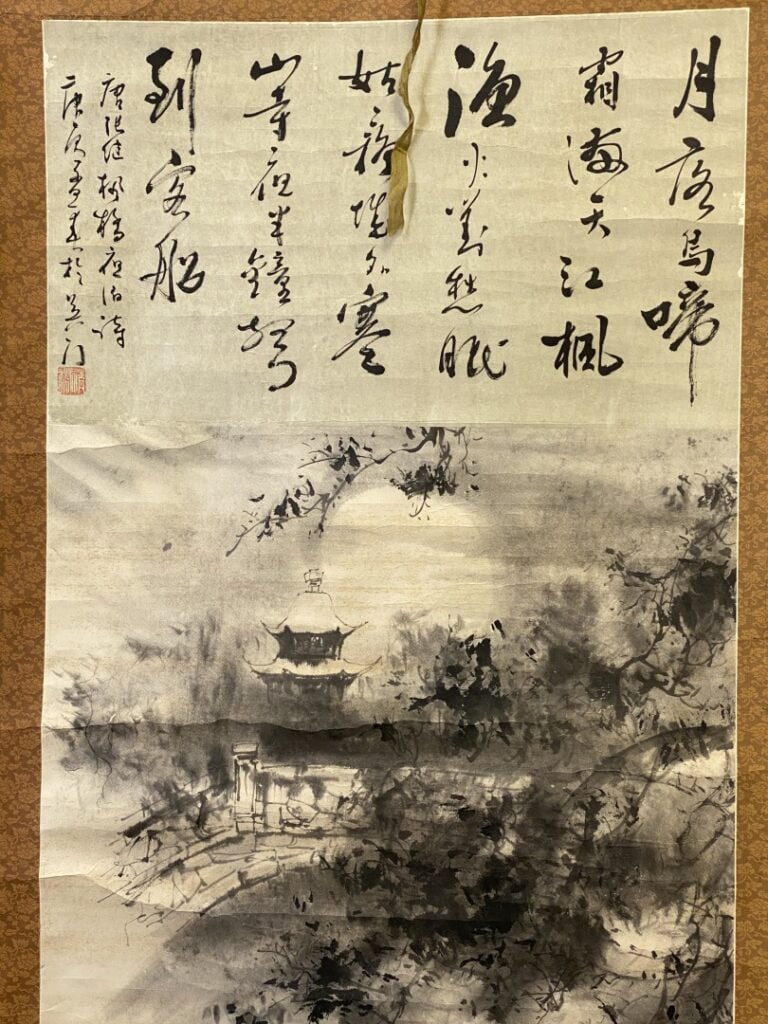 月落烏啼
霜滿天江楓
漁火對愁眠
姑蘇城外寒
山寺夜半鐘聲
到客船
唐張繼楓橋夜泊詩
春於吴门